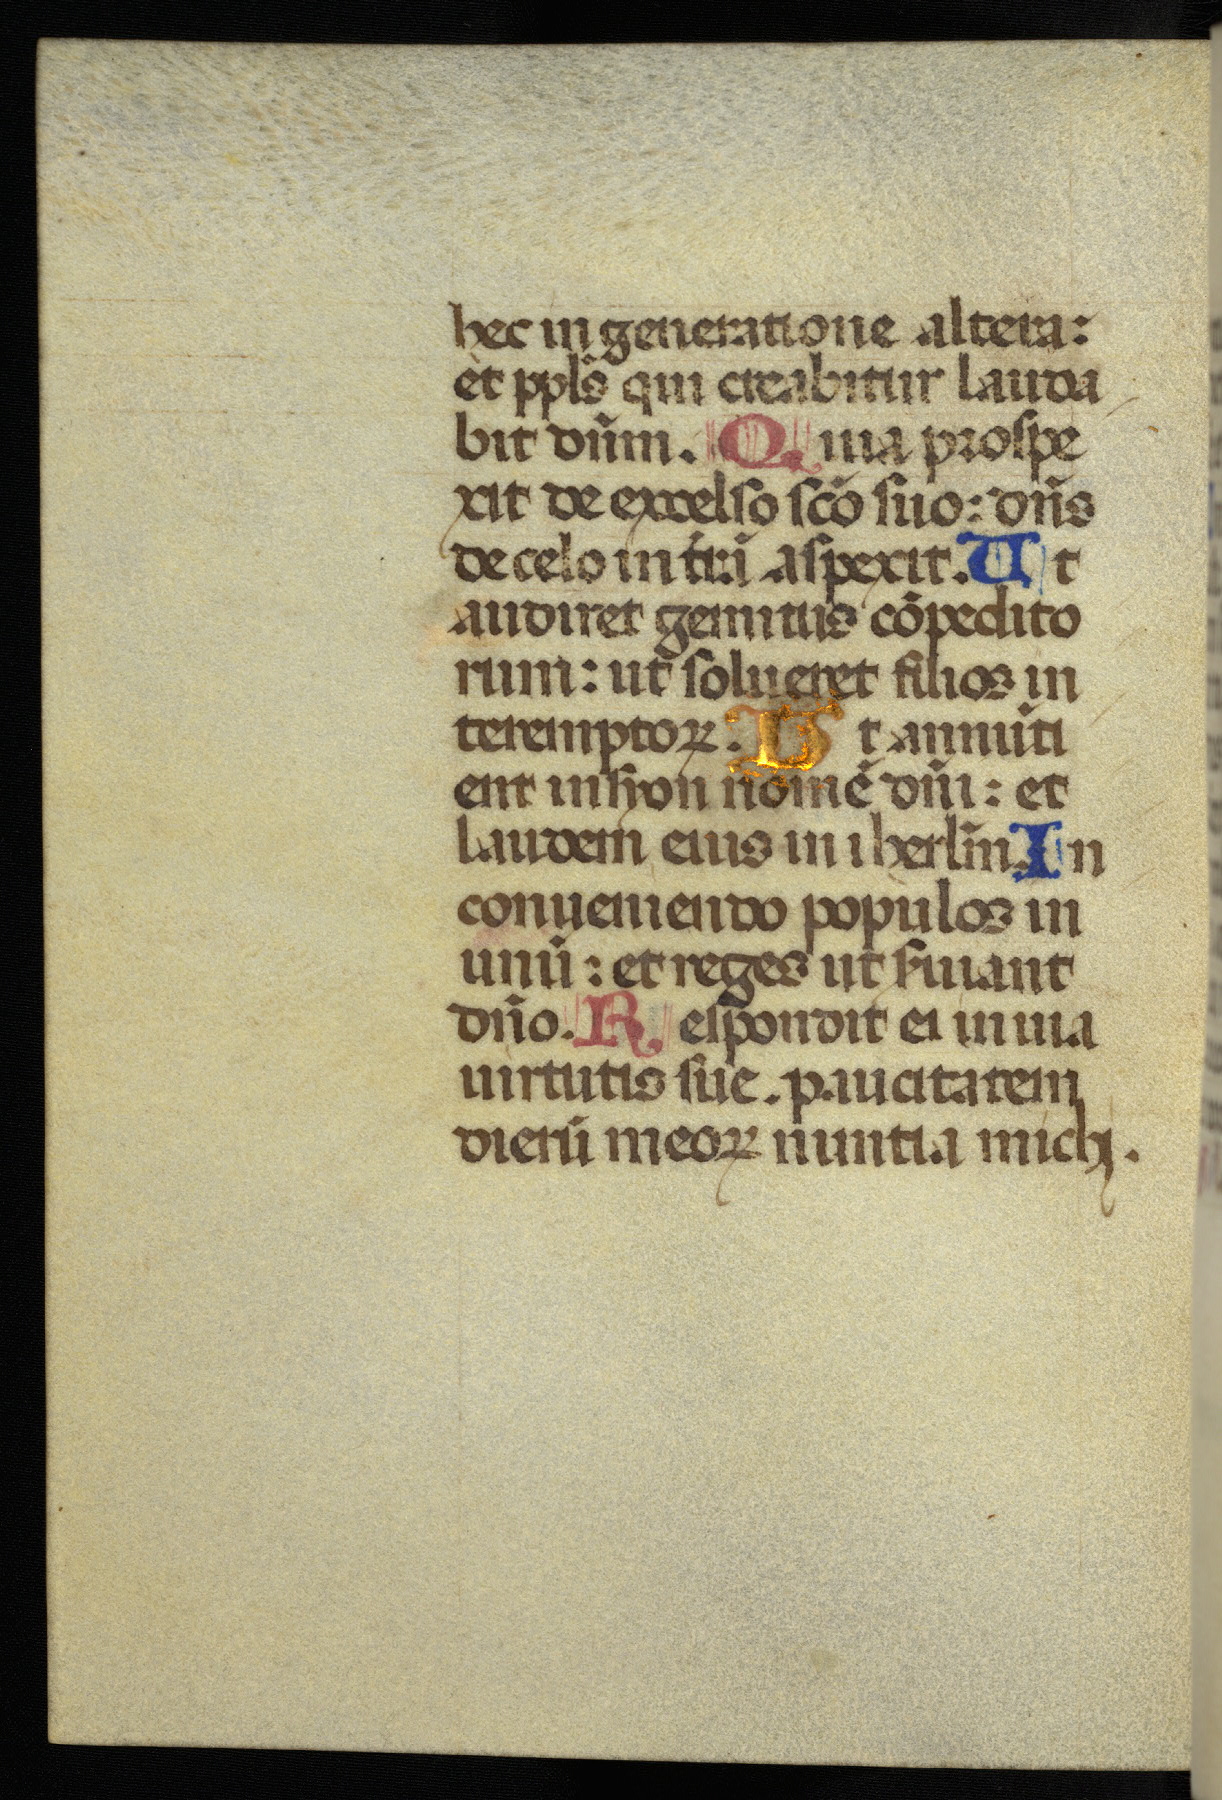 hec in generatione altera:
et ppl̃s qui creabitur lauda
bit dñm. Quia prospe
xit de excelso scõ suo: dñs
de celo in tr̃ã aspexit. Ut
audiret gemitus cõpedito
rum: ut solueret filios in
teremptoꝝ. Ut annũti
ent in syon nomẽ dñi: et
laudem eius in iherlm̃. In
conueniendo populos in
unũ: et reges ut s̃uiant
dño. Respondit ei in uia
uirtutis sue. paucitatem
dierũ meoꝝ nuntia michi.